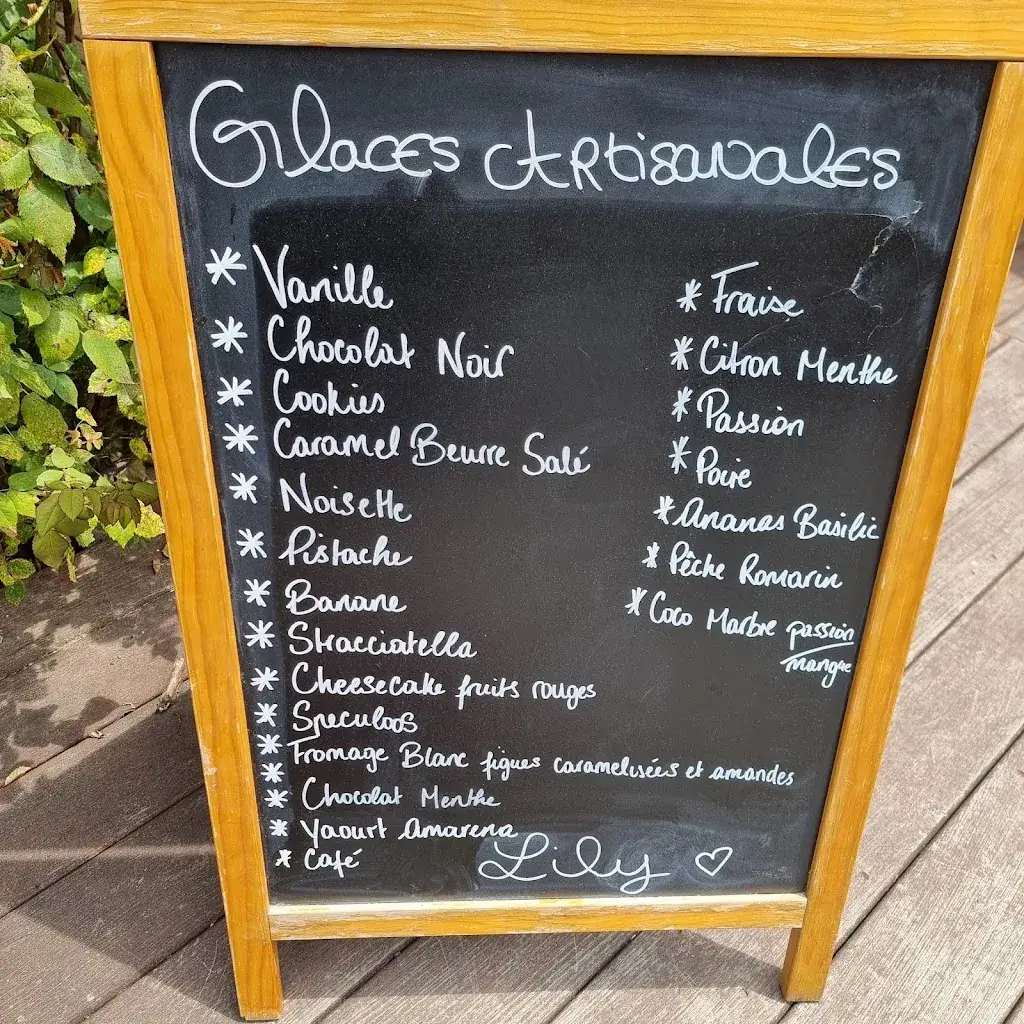 Glaces Artisanales
* Vanille
* Chocolat Noir
* Cookies
* Caramel Beurre Salé
* Noisette
* Pistache
* Banane
* Stracciatella
* Cheesecake fruits rouges
* Speculoos
* Fromage Blanc figues caramelisées et amandes
*
* Chocolat Menthe
* Yaourt Amarena
* Café
* Fraise
* Citron Menthe
* Passion
* Poire
* Ananas Basilic
* Pêche Romarin
* Coco Marbre passion
mangue
Lily ♡